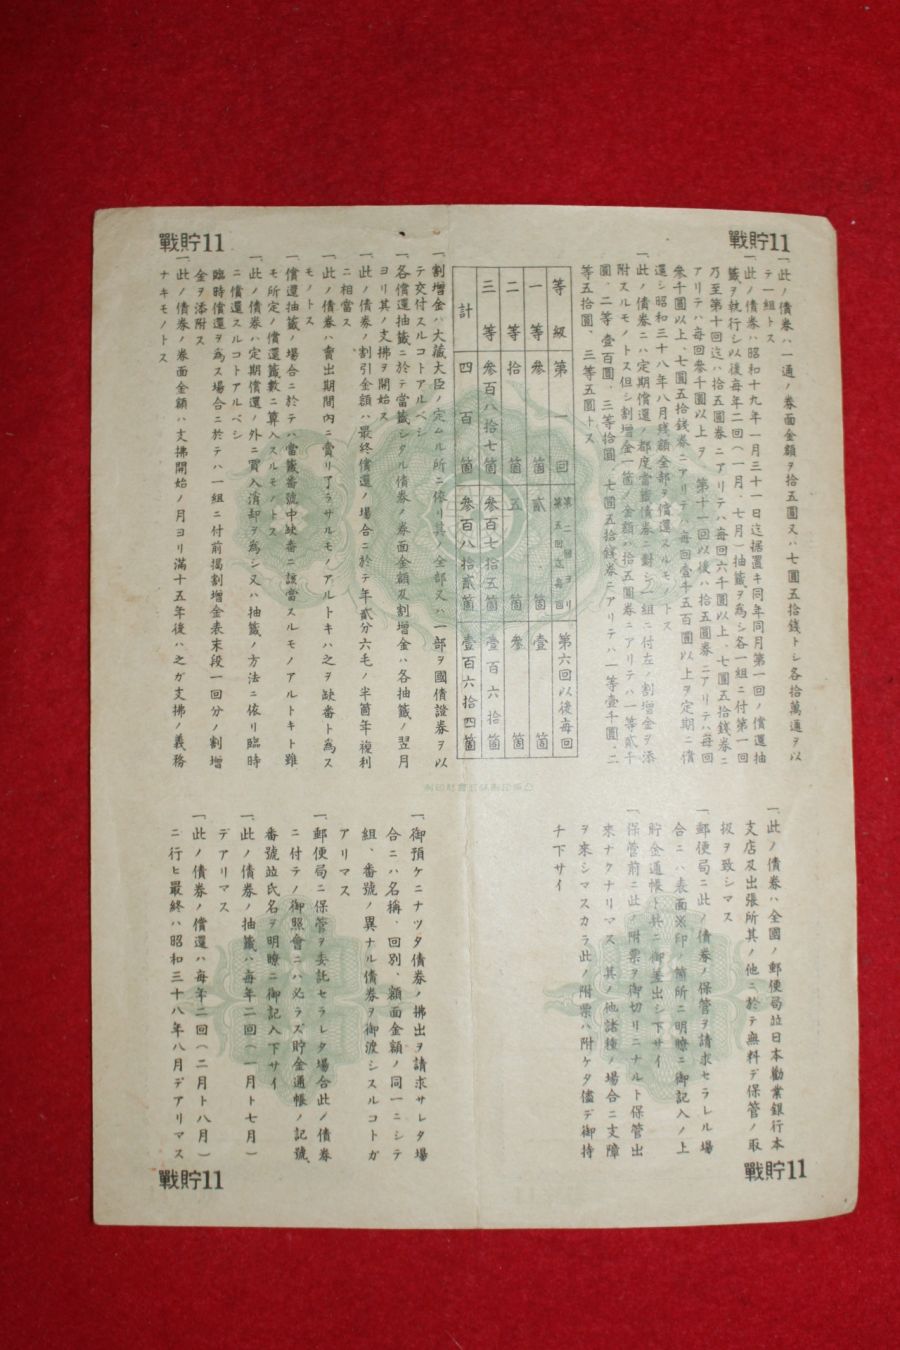 戰貯11
戰貯11
一、此ノ債券ハ一通ノ券面金額ヲ拾五圓又ハ七圓五拾錢トシ各拾萬通ヲ以
テ一組トス
一、此ノ債券ハ昭和十九年一月三十一日迄据置キ同年同月第一回ノ償還抽
籤ヲ執行シ以後每年二回(一月、七月)抽籤ヲ爲シ各一組ニ付第一回
乃至第十回迄ハ拾五圓券ニアリテハ每回六千圓以上、七圓五拾錢券ニ
アリテハ每回參千圓以上ヲ、第十一回以後ハ拾五圓券ニアリテハ每回
參千圓以上、七圓五拾錢券ニアリテハ每回壹千五百圓以上ヲ定期ニ償
還シ昭和三十八年八月殘額全部ヲ償還スルモノトス
一、此ノ債券ニハ定期償還ノ都度當籤債券ニ對シ一組ニ付左ノ割增金ヲ添
附スルモノトス但シ割增金一箇ノ金額ハ拾五圓券ニアリテハ一等貳千
圓、二等壹百圓、三等拾圓、七圓五拾錢券ニアリテハ一等壹千圓、二
等五拾圓、三等五圓トス
等級 第一回 第二回ヨリ第五回迄每回 第六回以後每回
一等 參箇 貳箇 壹箇
二等 拾箇 五箇 參箇
三等 參百八拾七箇 參百七拾五箇 壹百六拾箇
計 四百箇 參百八拾貳箇 壹百六拾四箇
一、割增金ハ大藏大臣ノ定ムル所ニ依リ其ノ全部又ハ一部ヲ國債證券ヲ以
テ交付スルコトアルベシ
一、各償還抽籤ニ於テ當籤シタル債券ノ券面金額及割增金ハ各抽籤ノ翌月
ヨリ其ノ支拂ヲ開始ス
一、此ノ債券ノ割引金額ハ最終償還ノ場合ニ於テ年貳分六毛ノ半箇年複利
ニ相當ス
一、此ノ債券ハ賣出期間內ニ賣リ了ラサルモノアルトキハ之ヲ缺番ト爲ス
モノトス
一、償還抽籤ノ場合ニ於テハ當籤番號中缺番ニ該當スルモノアルトキト雖
モ所定ノ償還籤數ニ算入スルモノトス
一、此ノ債券ハ定期償還ノ外ニ買入消却ヲ爲シ又ハ抽籤ノ方法ニ依リ臨時
ニ償還スルコトアルベシ
臨時償還ヲ爲ス場合ニ於テハ一組ニ付前揭割增金表末段一回分ノ割增
金ヲ添附ス
一、此ノ債券ノ券面金額ハ支拂開始ノ月ヨリ滿十五年後ハ之ガ支拂ノ義務
ナキモノトス
一、此ノ債券ハ全國ノ郵便局竝日本勸業銀行本
支店及出張所其ノ他ニ於テ無料デ保管ノ取
扱ヲ致シマス
一、郵便局ニ此ノ債券ノ保管ヲ請求セラレル場
合ニハ表面※印ノ箇所ニ明瞭ニ御記入ノ上
貯金通帳ト共ニ御差出シ下サイ
一、保管前ニ此ノ附票ヲ御切リニナルト保管出
來ナクナリマス、其ノ他諸種ノ場合ニ支障
ヲ來シマスカラ此ノ附票ハ附ケタ儘デ御持
チ下サイ
一、御預ケニナツタ債券ノ拂出ヲ請求サレタ場
合ニハ名稱、回別、額面金額ノ同一ニシテ
組、番號ノ異ナル債券ヲ御渡シスルコトガ
アリマス
一、郵便局ニ保管ヲ委託セラレタ場合此ノ債券
ニ付テノ御照會ニハ必ラズ貯金通帳ノ記號、
番號竝氏名ヲ明瞭ニ御記入下サイ
一、此ノ債券ノ抽籤ハ每年二回(一月ト七月)
デアリマス
一、此ノ債券ノ償還ハ每年二回(二月ト八月)
ニ行ヒ最終ハ昭和三十八年八月デアリマス
戰貯11
戰貯11